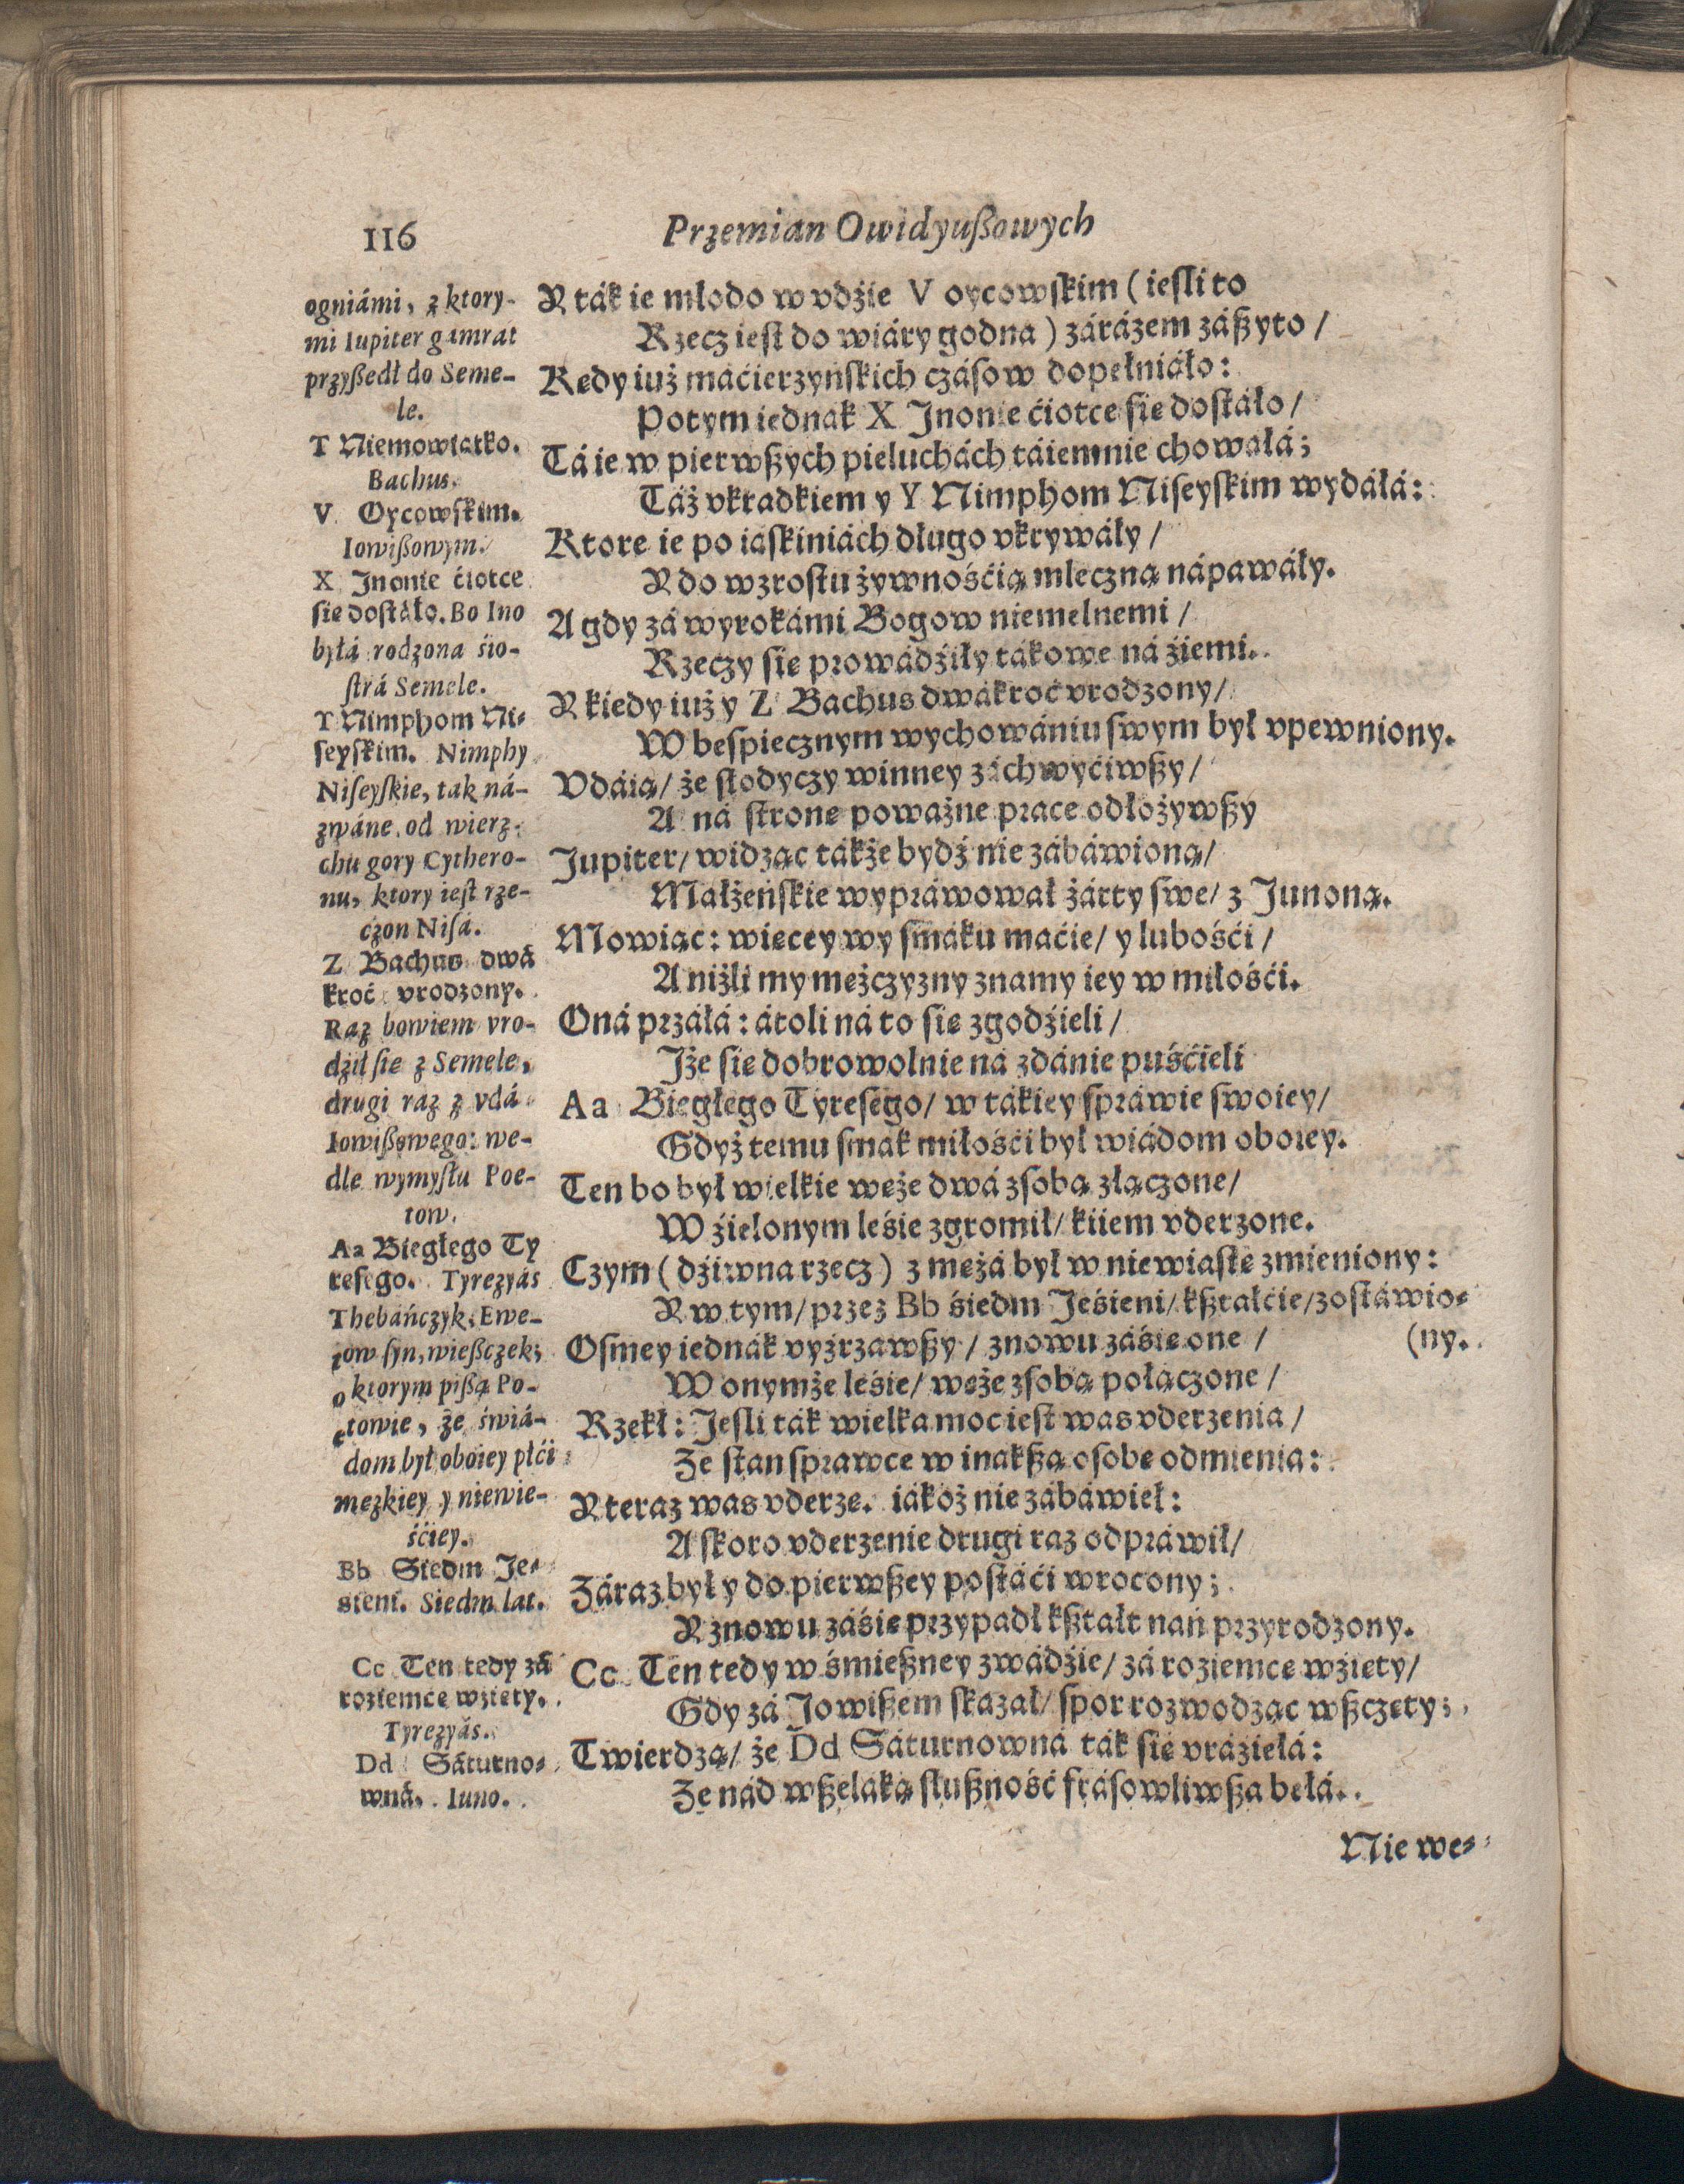 116
Przemian Owidyußowych
ogniámi, z ktory-
mi Iupiter gamrat
przyßedł do Seme-
le.
T Niemowiatko.
Bachus.
V Oycowskim.
Iowißowym.
X Jnonie ćiotce
sie dostáło. Bo Ino
byłá rodzona śio-
strá Semele.
Y Nimphom Ni-
seyskim. Nimphy
Niseyskie, tak ná-
zwáne od wierz-
chu gory Cythero-
nu, ktory iest rze-
czon Nisá.
Z Bachus dwá
kroć vrodzony.
Raz bowiem vro-
dźił sie z Semele,
drugi raz z vdá
Iowißowego: we-
dle wymysłu Poe-
tow.
Aa Biegłego Ty
resego. Tyrezyás
Thebáńczyk, Ewe-
row syn, wießczek;
o ktorym pißą Po-
etowie, że świá-
dom był oboiey płći
mezkiey y niewie-
śćiey.
Bb Siedm Je-
sieni. Siedm lat.
Cc Ten tedy zá
roziemce wziety.
Tyrezyás.
Dd Sáturno-
wná. Iuno.
Y ták ie młodo w vdźie V oycowskim (iesli to
Rzecz iest do wiáry godna) zárázem záßyto /
Kedy iuż máćierzyńskich czásow dopełniáło:
Potym iednak X Jnonie ćiotce sie dostáło /
Tá ie w pierwßych pieluchách táiemnie chowałá;
Táż vkradkiem y Y Nimphom Niseyskim wydáłá:
Ktore ie po iáskiniách długo vkrywáły /
Y do wzrostu żywnośćią mleczną nápawáły.
A gdy zá wyrokámi Bogow niemelnemi /
Rzeczy sie prowádźiły tákowe ná źiemi.
Y kiedy iuż y Z Bachus dwákroć vrodzony /
W bespiecznym wychowániu swym był vpewniony.
Vdáią / że słodyczy winney záchwyćiwßy /
A ná strone poważne prace odłożywßy
Jupiter / widząc tákże bydź nie zábáwioną /
Małżeńskie wypráwował żárty swe / z Junoną.
Mowiąc: wiecey wy smáku maćie / y lubośći /
A niżli my meżczyzny znamy iey w miłośći.
Oná przáłá: átoli ná to sie zgodźieli /
Jże sie dobrowolnie ná zdánie puśćieli
Aa Biegłego Tyresego / w tákiey spráwie swoiey /
Gdyż temu smák miłośći był wiádom oboiey.
Ten bo był wielkie weże dwá zsobą złączone /
W źielonym leśie zgromił / kiiem vderzone.
Czym (dźiwna rzecz) z meżá był w niewiáste zmieniony:
Y w tym / przez Bb śiedm Jeśieni / kßtałćie / zostáwio-
(ny.
Osmey iednák vyźrzawßy / znowu záśie one /
W onymże leśie / weże zsobą połączone /
Rzekł: Jesli ták wielka moc iest was vderzenia /
Że stan sprawce w inákßą osobe odmienia:
Y teraz was vderze. iákoż nie zábáwieł:
A skoro vderzenie drugi raz odpráwił /
Záraz był y do pierwßey postáći wrocony;
Y znowu záśie przypadł kßtałt nań przyrodzony.
Cc Ten tedy w śmießney zwádźie / zá roziemce wźiety /
Gdy zá Jowißem skazał / spor rozwodząc wßczety;
Twierdzą / że Dd Sáturnowná ták sie vráźiełá:
Że nád wßeláką słußność frásowliwßa bełá.
Nie we-